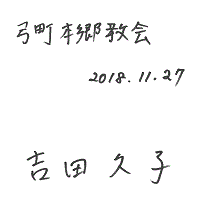 弓町本郷教会
2018.11.27
吉田久子